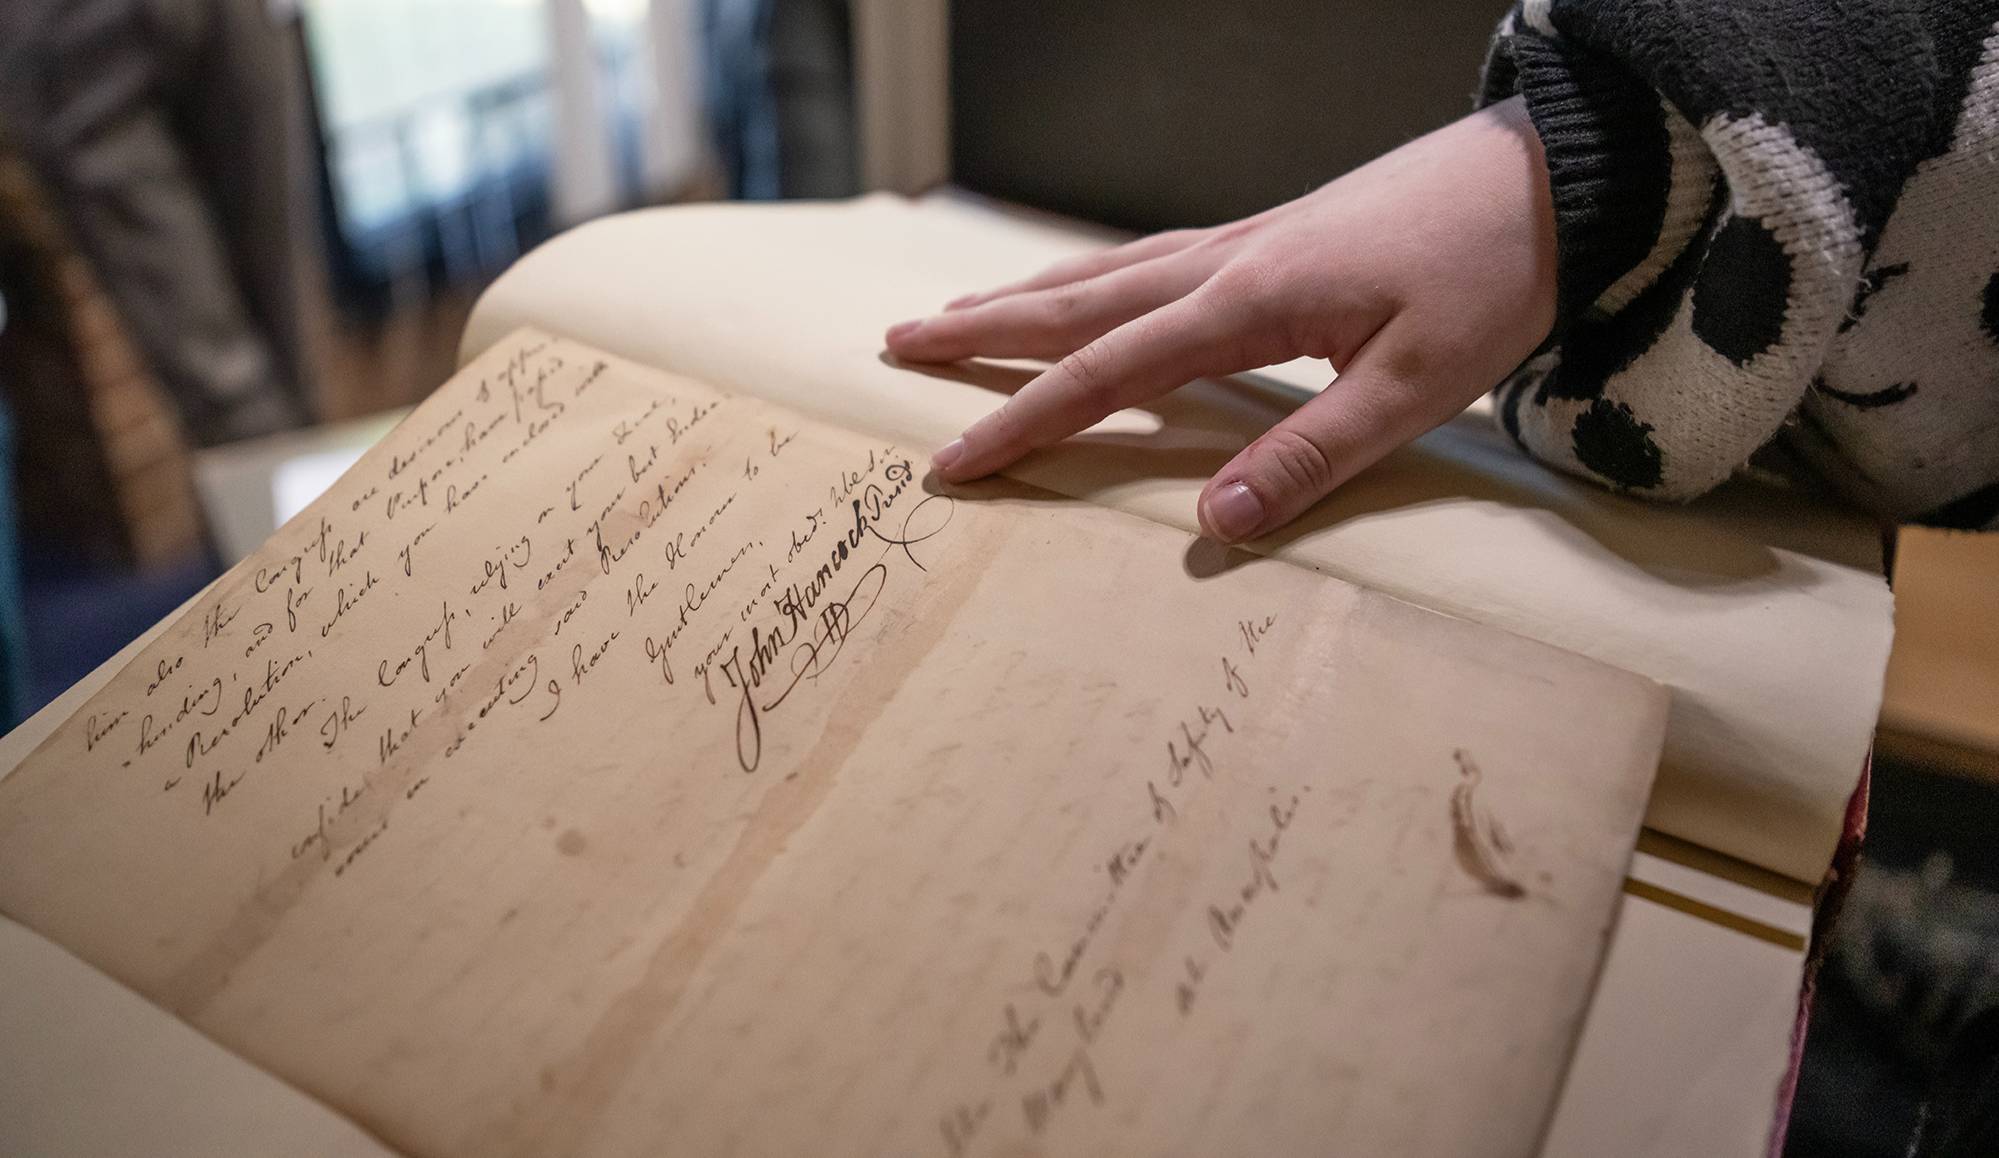 him also the Congress are desirous of appre-
-hending, and for that Purpose, have pass'd
a Resolution, which you have inclosed with
the other.
The Congress, relying on your Zeal,
confide that you will exert your best Endea-
vours in executing said Resolutions.-
I have the Honour to be
Gentlemen,
your most obed. & hble Ser.
John Hancock Presid
The Committee of Safety of the
Maryland
at Annapolis.